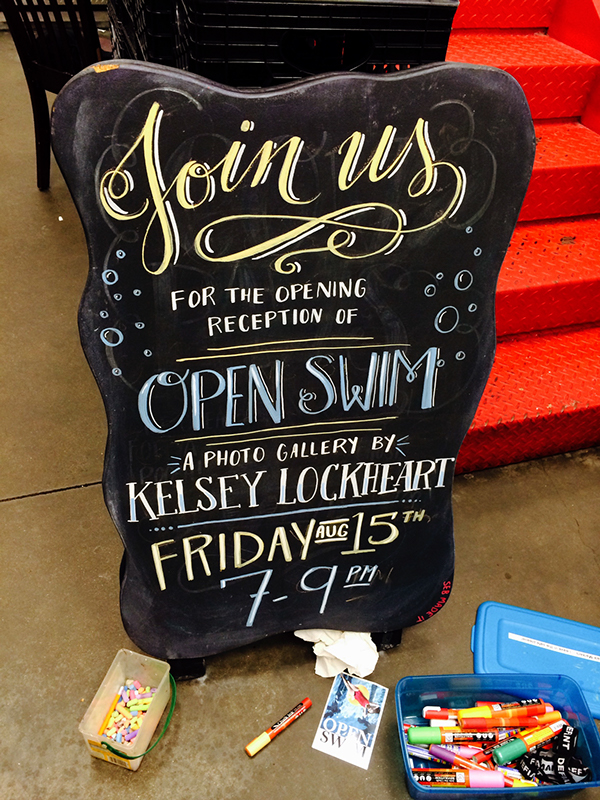 Join us
FOR THE OPENING
RECEPTION OF
OPEN SWIM
A PHOTO GALLERY BY
KELSEY LOCKHEART
FRIDAY AUG 15TH
7-9 PM
SEB MADE IT
OPEN
SWIM